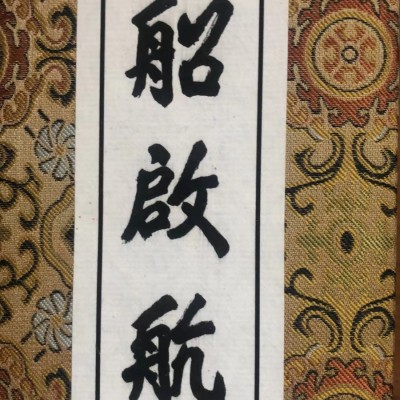 船啟航